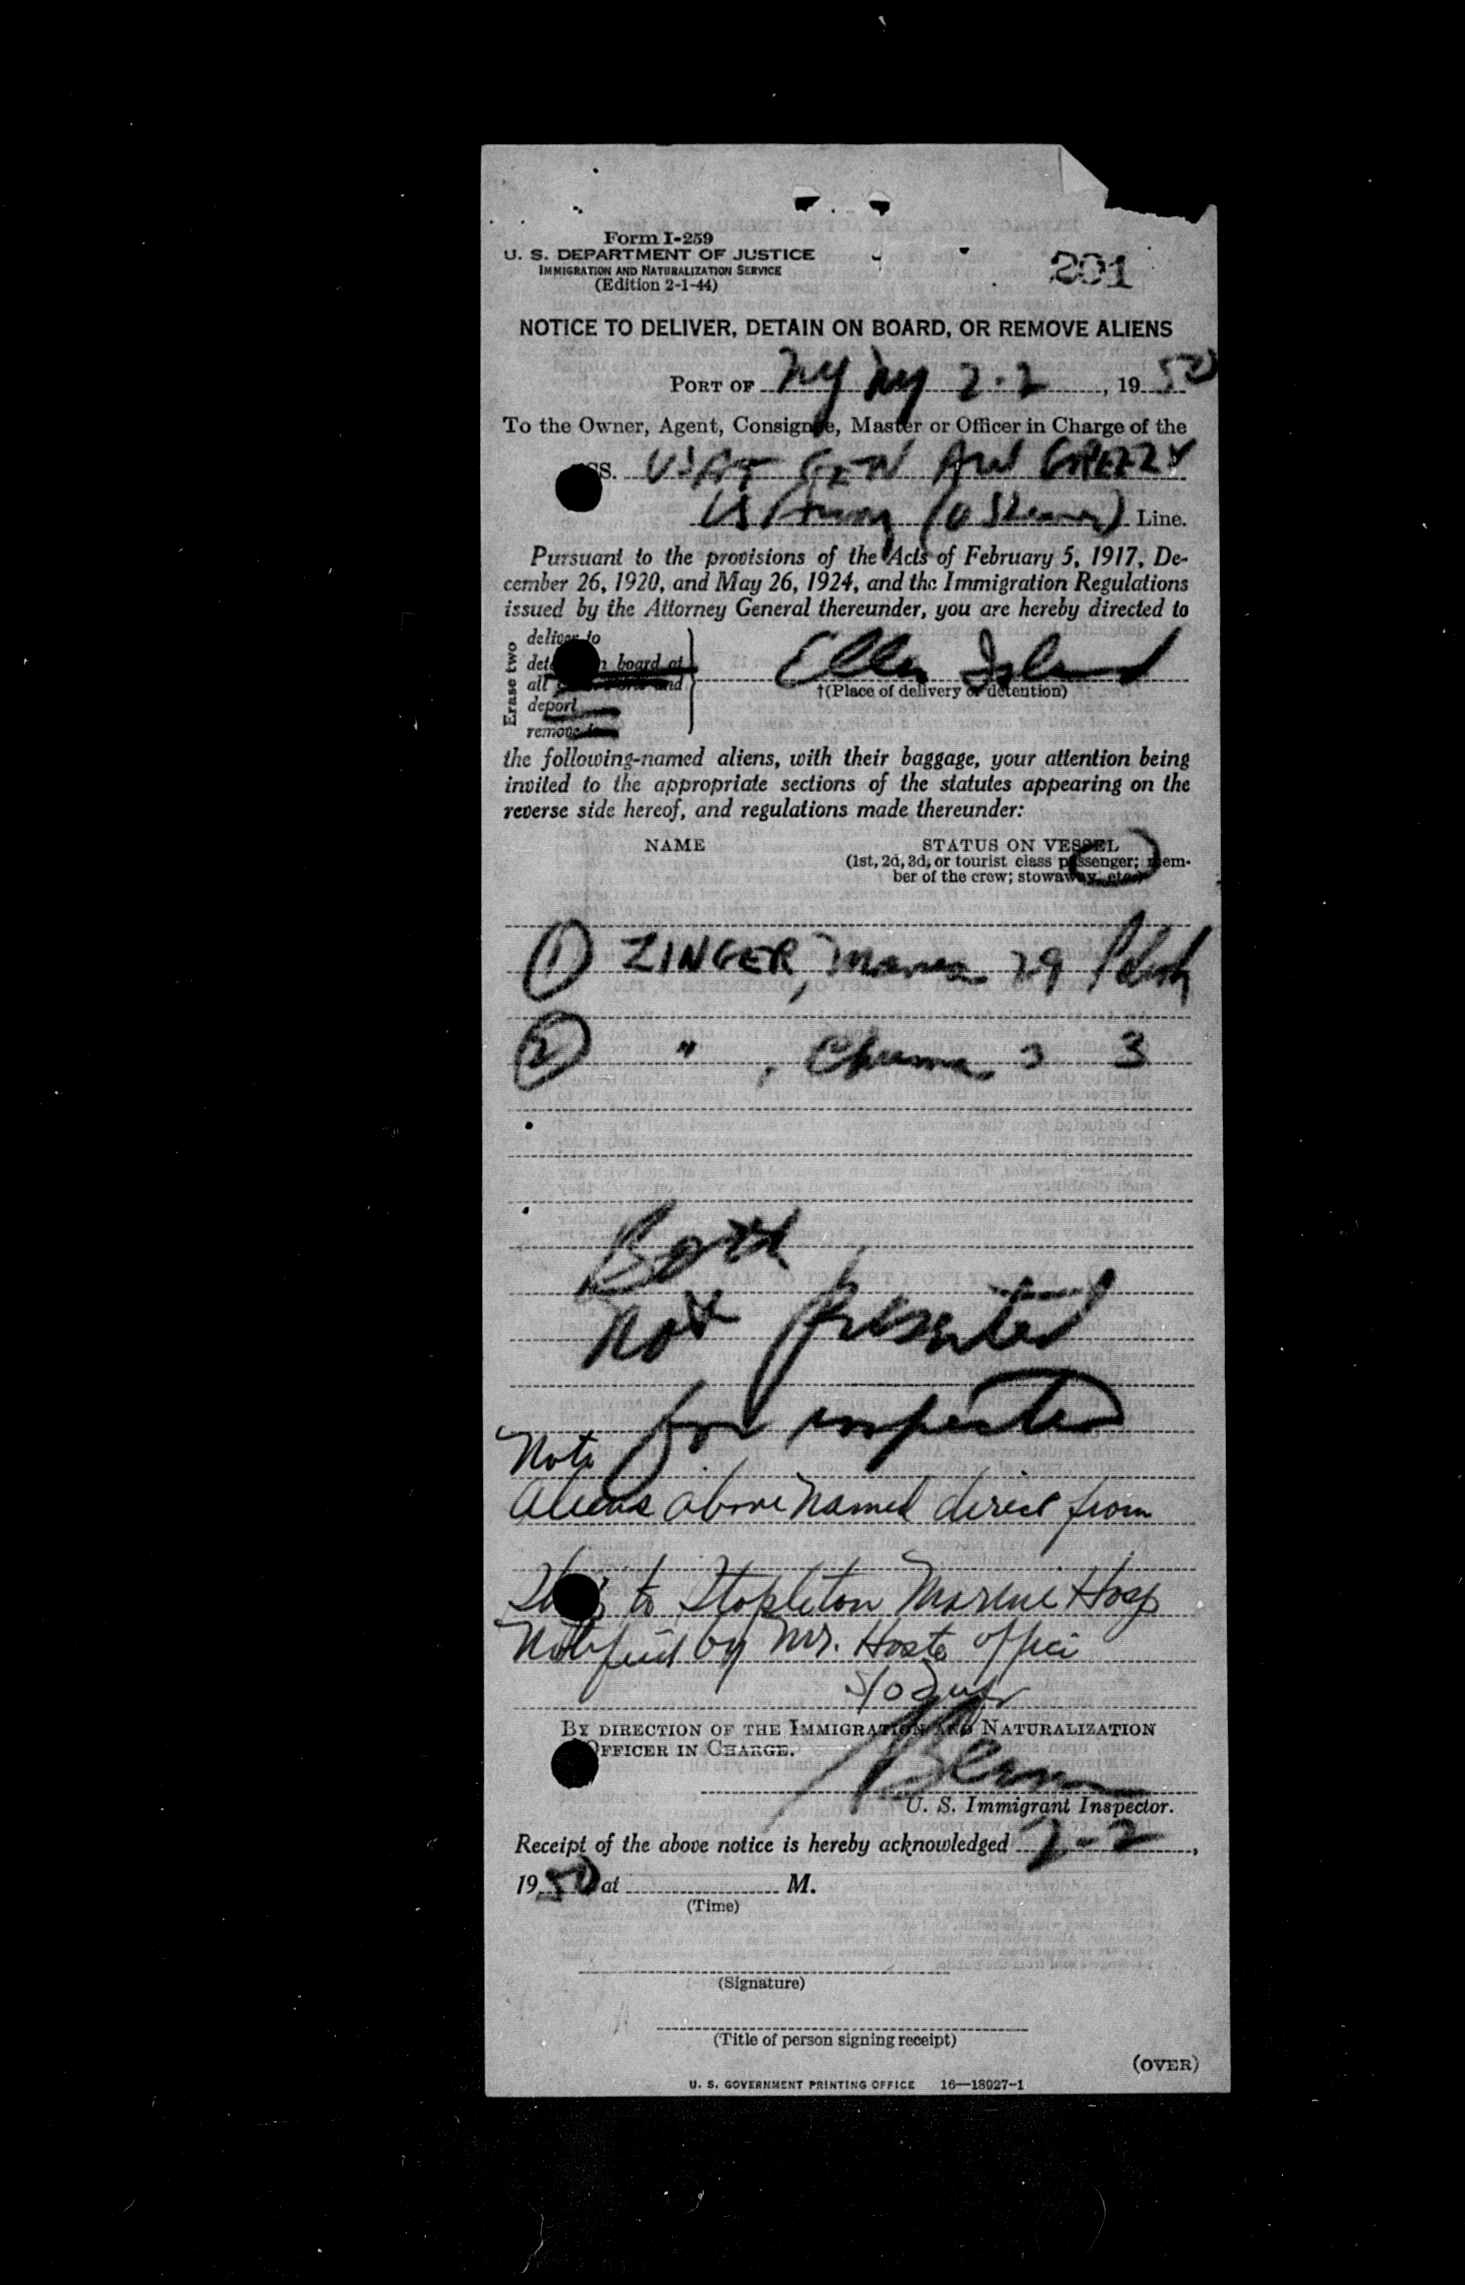 Form I-259
U. S. DEPARTMENT OF JUSTICE
IMMIGRATION AND NATURALIZATION SERVICE
(Edition 2-1-44)
201
NOTICE TO DELIVER, DETAIN ON BOARD, OR REMOVE ALIENS
PORT OF NY NY 2-2, 1950
To the Owner, Agent, Consignee, Master or Officer in Charge of the
SS. USAT GEN AW GREELY
US Army (O Steamer) Line.
Pursuant to the provisions of the Acts of February 5, 1917, De-
cember 26, 1920, and May 26, 1924, and the Immigration Regulations
issued by the Attorney General thereunder, you are hereby directed to
Erase two
deliver to
board at
all and
deport
remove to
Ellis Island
†(Place of delivery or detention)
the following-named aliens, with their baggage, your attention being
invited to the appropriate sections of the statutes appearing on the
reverse side hereof, and regulations made thereunder:
NAME STATUS ON VESSEL
(1st, 2d, 3d, or tourist class passenger; mem-
ber of the crew; stowaway, etc.)
1 ZINGER, 29 Polish
2 " , Chuma 3
Both
not presented
for inspection
Note
Aliens above named direct from
Ship to Stapleton Marine Hosp
Notified by Mr. Hosts office
BY DIRECTION OF THE IMMIGRATION AND NATURALIZATION
OFFICER IN CHARGE.
U. S. Immigrant Inspector.
Receipt of the above notice is hereby acknowledged 2-2,
1950 at M.
(Time)
(Signature)
(Title of person signing receipt)
(OVER)
U. S. GOVERNMENT PRINTING OFFICE 16—18927-1